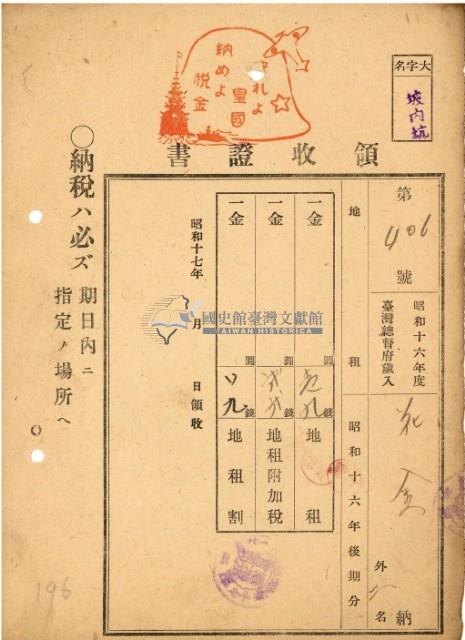 守れよ
皇國
納めよ
税金
大字名
坡內坑
領收證書
第 406 號
昭和十六年度
臺灣總督府歲入
地租
昭和十六年後期分
納
外 名
一金 圓 九錢 地租
一金 圓 錢 地租附加税
一金 圓 九錢 地租割
昭和十七年 月 日領收
國史館臺灣文獻館
TAIWAN HISTORICA
〇納税ハ必ズ
期日內ニ
指定ノ場所ヘ
196